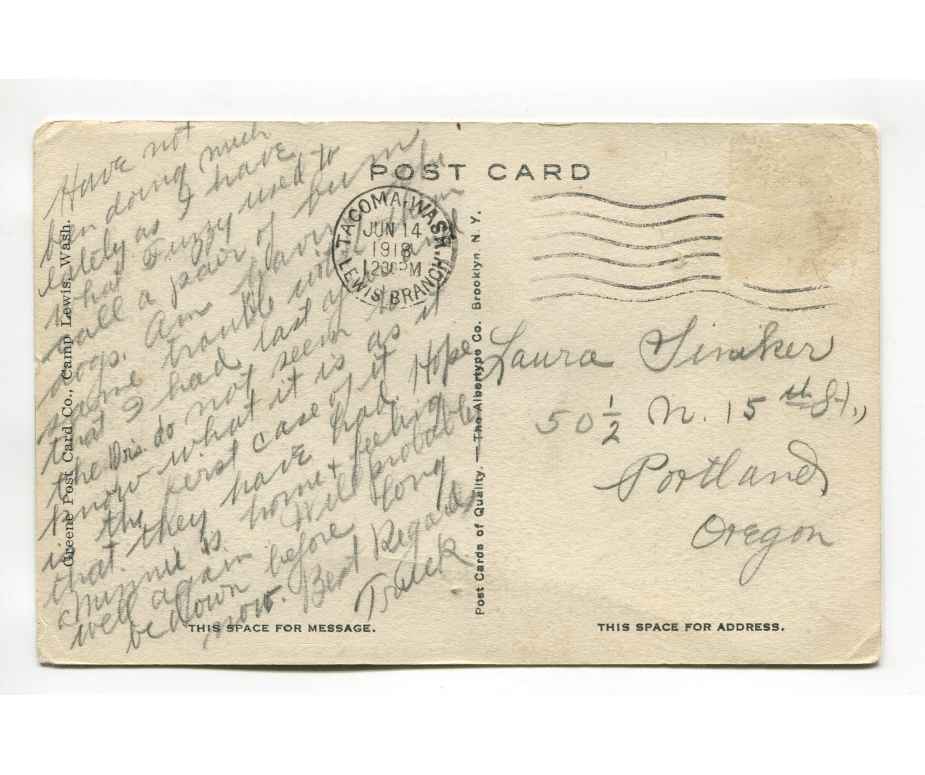 POST CARD
Have not
been doing much
lately as I have
what Fuzzy used to
call a pair of bum
dogs. Am having the
same trouble with them
that I had last year and
the Drs. do not seem to
know what it is as it
is the first case of it
that they have had. Hope
Minnie is home & feeling
well again. Will probably
be down before long
now. Best Regards
Truck
TACOMA, WASH.
JUN 14
1918
12 30 PM
LEWIS BRANCH
Laura
50 1/2 N. 15th St.,
Portland,
Oregon
Greene Post Card Co., Camp Lewis, Wash.
Post Cards of Quality. — The Albertype Co. Brooklyn N. Y.
THIS SPACE FOR MESSAGE.
THIS SPACE FOR ADDRESS.